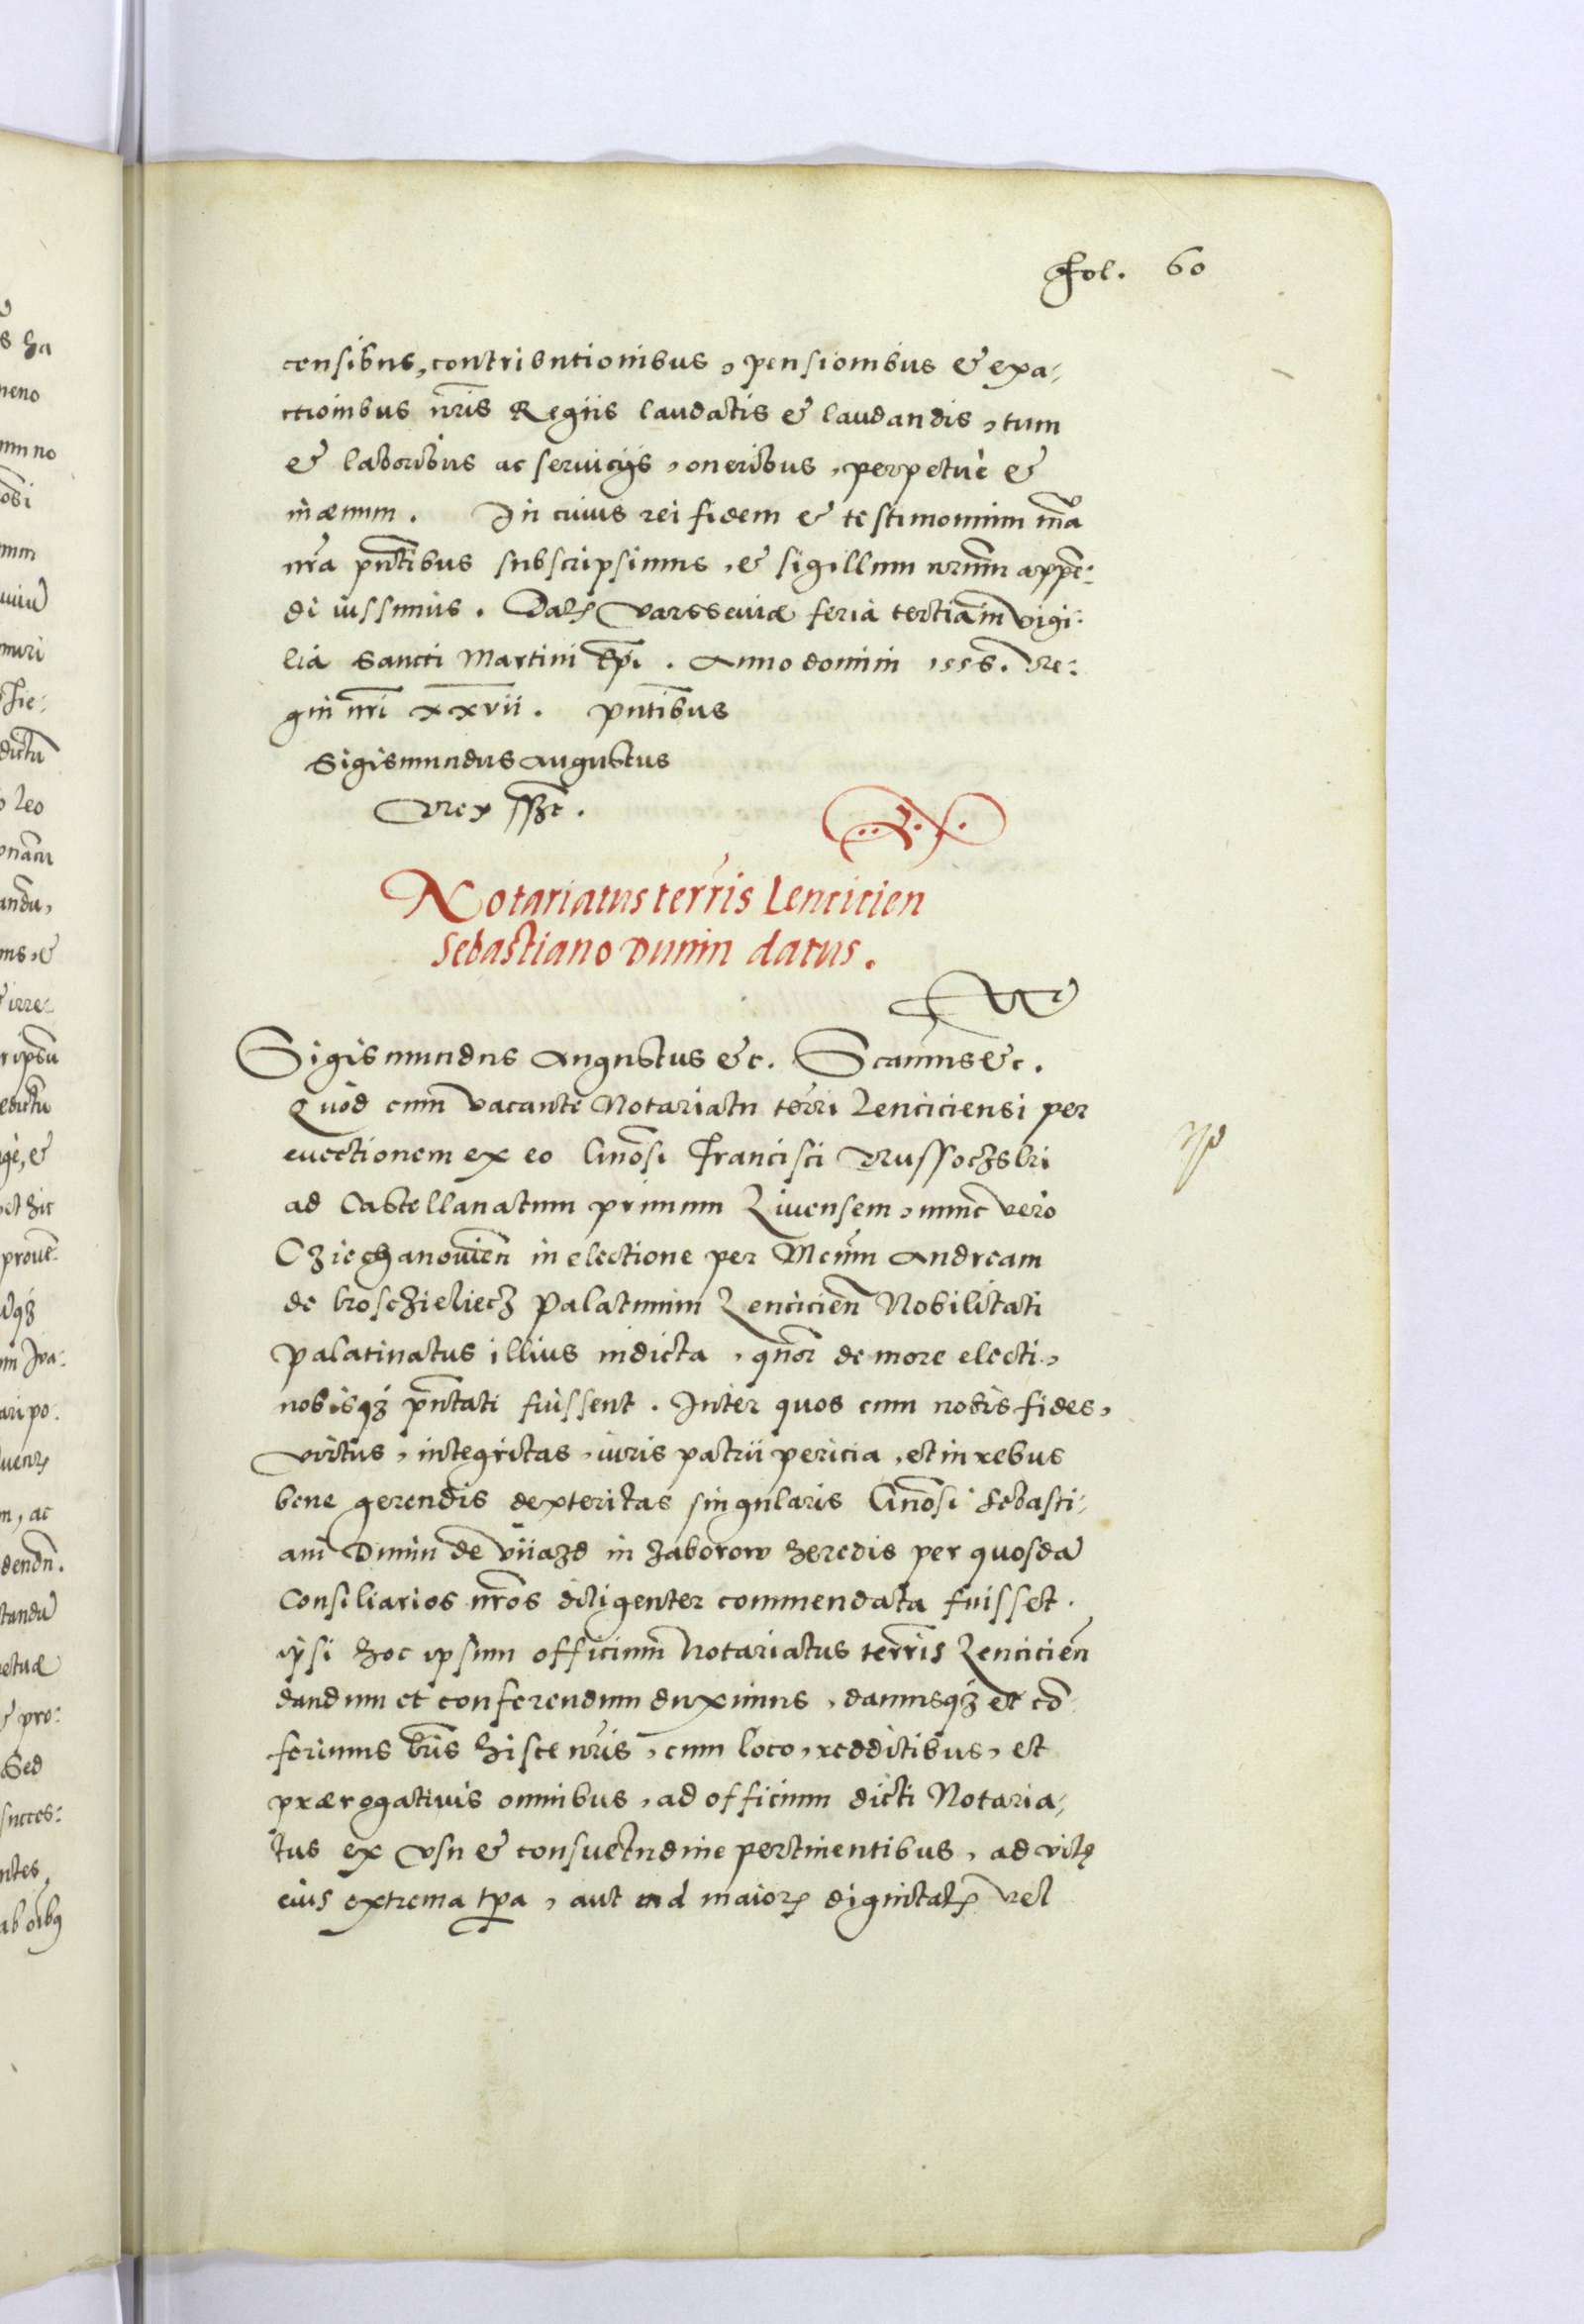 Fol. 60
censibus, contributionibus, pensionibus & exa-
ctionibus nris Regiis laudatis & laudandis, tum
& laboribus ac seruicijs, oneribus, perpetue &
in æuum. In cuius rei fidem & testimonium
nra pntibus subscripsimus, & sigillum nrum appe-
di iussimus. Dat Varsseuiæ feria tertia in vigi-
lia Sancti Martini Epi. Anno domini 1556. Re-
gni nri xxvii. pntibus
Sigismundus Augustus
Rex sst.
Notariatus terris Lencicien
Sebastiano Dunin datus.
Sigismundus Augustus &c. S canimus &c.
Quod cum vacante Notariatu terri Lenciciensi per
euectionem ex eo Gnosi Francisci Russoczski
ad Castellanatum primum Liuensem, nunc vero
Cziechanouien in electione per Mcum Andream
de Kosczieliecz Palatinum Lencicien Nobilitati
palatinatus illius indicta, qnor de more electi,
nobisqz pntati fuissent. Inter quos cum nobis fides,
virtus, integritas, iuris patrii pericia, et in rebus
bene gerendis dexteritas singularis Gnosi Sebasti-
ani Dunin de Viiazd in Zaborow heredis per quosda
Consiliarios nros diligenter commendata fuisset.
ipsi hoc ipsum officium Notariatus terris Lencicien
dandum et conferendum duximus, damusqz et co-
ferimus lris hisce nris, cum loco, redditibus, et
prærogatiuis omnibus, ad officium dicti Notaria-
tus ex vsu & consuetudine pertinentibus, ad vitę
eius extrema tpa, aut ad maiore dignitate vel